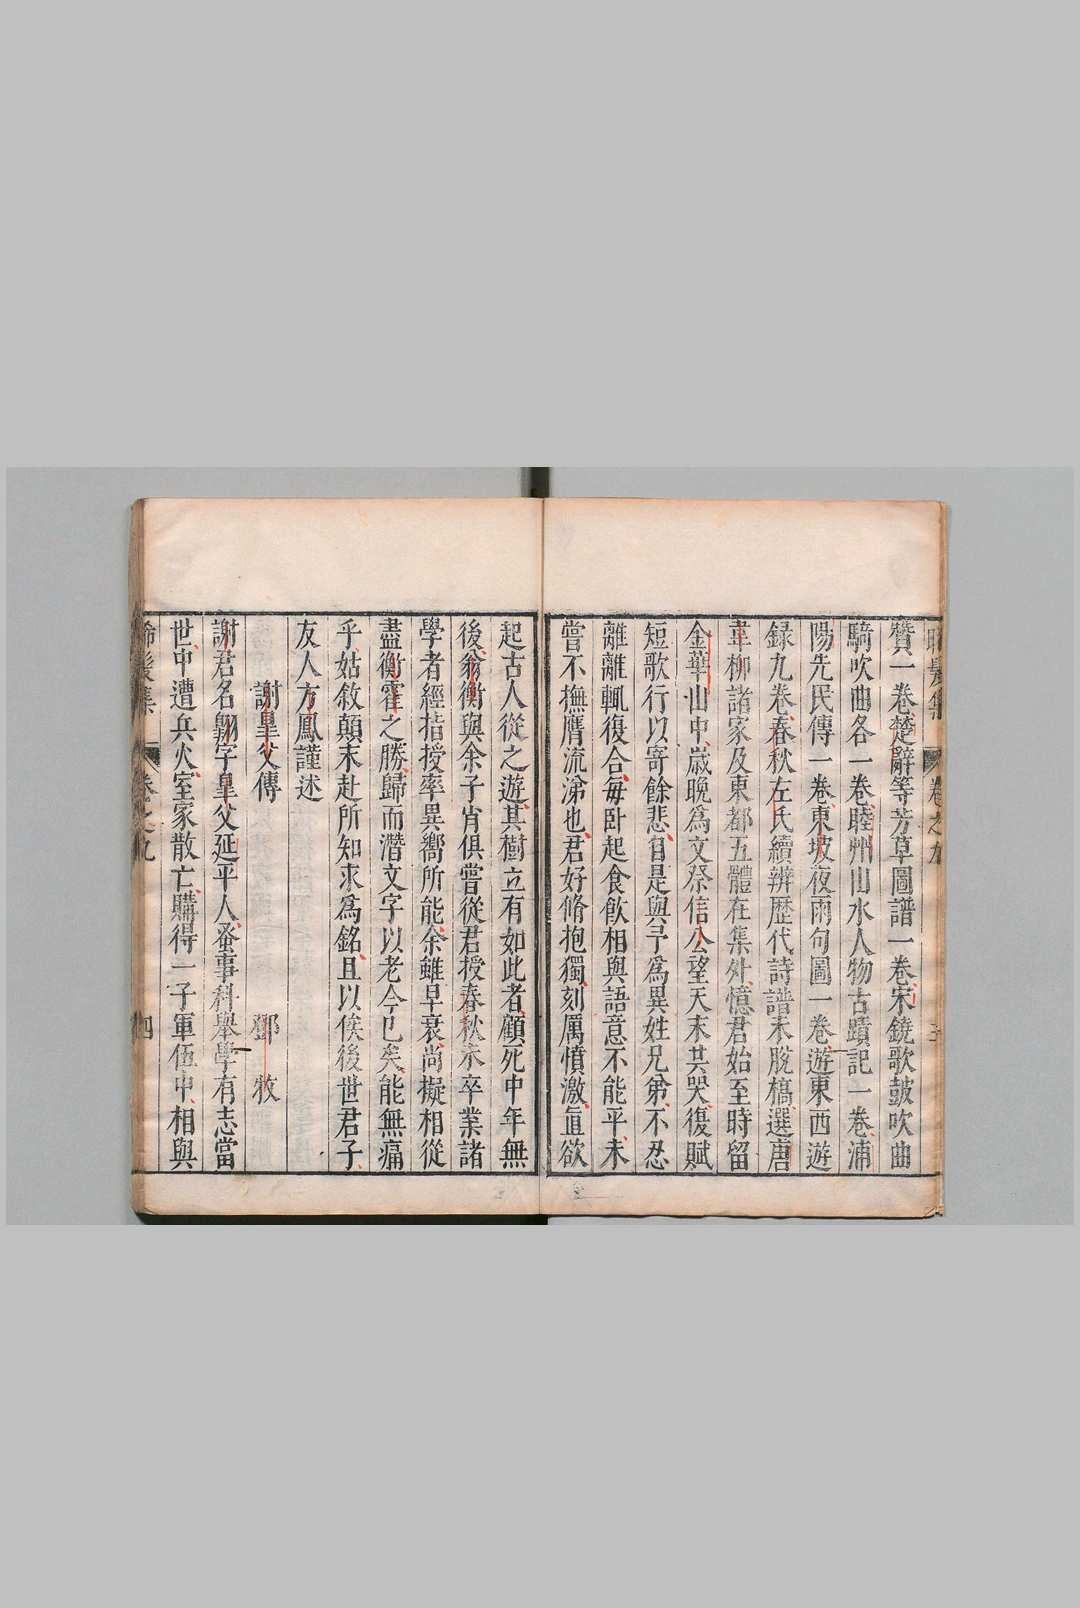 晞髮集 卷之九 三
贊一卷楚辭等芳草圖譜一卷宋鐃歌鼓吹曲
騎吹曲各一卷睦州山水人物古蹟記一卷浦
陽先民傳一卷東坡夜雨句圖一卷遊東西遊
録九卷春秋左氏續辨歷代詩譜未脫槁選唐
韋柳諸家及東都五體在集外憶君始至時留
金華山中歲晚為文祭信公望天末共哭復賦
短歌行以寄餘悲自是與予為異姓兄弟不忍
離離輒復合每卧起食飲相與語意不能平未
嘗不撫膺流涕也君好脩抱獨刻厲憤激直欲
起古人從之遊其樹立有如此者顧死中年無
後翁衡與余子肖俱嘗從君授春秋未卒業諸
學者經指授率異嚮所能余雖早衰尚擬相從
盡衡霍之勝歸而潛文字以老今已矣能無痛
乎姑敘顛末赴所知求為銘且以俟後世君子
友人方鳳謹述
謝皇父傳 鄧牧
謝君名翱字皇父延平人蚤事科舉學有志當
世中遭兵火室家散亡購得一子軍伍中相與
晞髮集 卷之九 四